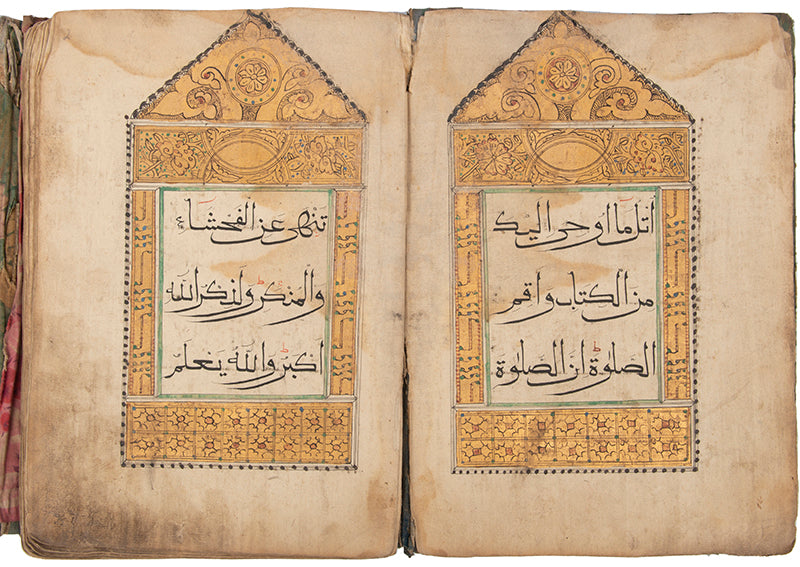 اتل ما اوحى اليك
من الكتاب واقم
الصلوة ان الصلوة
تنهى عن الفحشاء
والمنكر ولذكر الله
اكبر والله يعلم